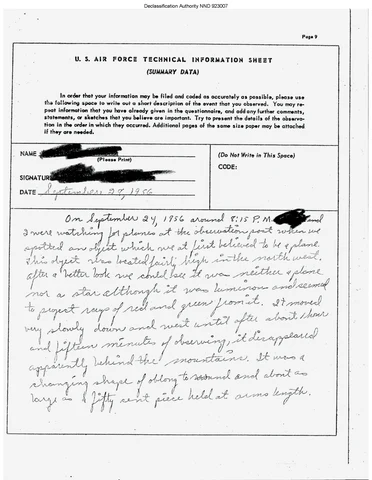 Declassification Authority NND 923007
Page 9
U. S. AIR FORCE TECHNICAL INFORMATION SHEET
(SUMMARY DATA)
In order that your information may be filed and coded as accurately as possible, please use
the following space to write out a short description of the event that you observed. You may re-
peat information that you have already given in the questionnaire, and add any further comments,
statements, or sketches that you believe are important. Try to present the details of the observa-
tion in the order in which they occurred. Additional pages of the same size paper may be attached
if they are needed.
NAME
(Please Print)
SIGNATURE
DATE September 27, 1956
(Do Not Write in This Space)
CODE:
On September 24, 1956 around 8:15 P.M. and
I were watching for planes at the observation post when we
spotted an object which we at first believed to be a plane.
This object was located fairly high in the north west.
After a better look we could see it was neither a plane
nor a star although it was luminous and seemed
to project rays of red and green from it. It moved
very slowly down and west until after about 1 hour
and fifteen minutes of observing, it disappeared
apparently behind the mountains. It was a
changing shape of oblong to round and about as
large as a fifty cent piece held at arms length.